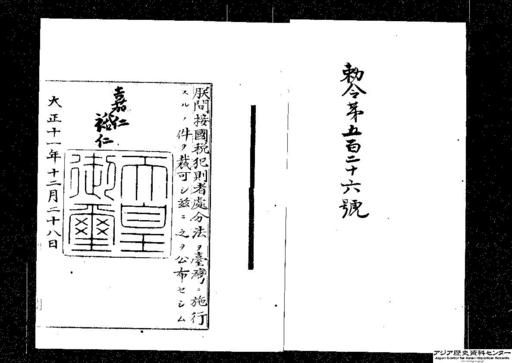 勅令第五百二十六號
朕間接國税犯則者處分法ヲ臺灣ニ施行
スルノ件ヲ裁可シ玆ニ之ヲ公布セシム
嘉仁
裕仁
天皇御璽
大正十一年十二月二十八日
アジア歴史資料センター
Japan Center for Asian Historical Records